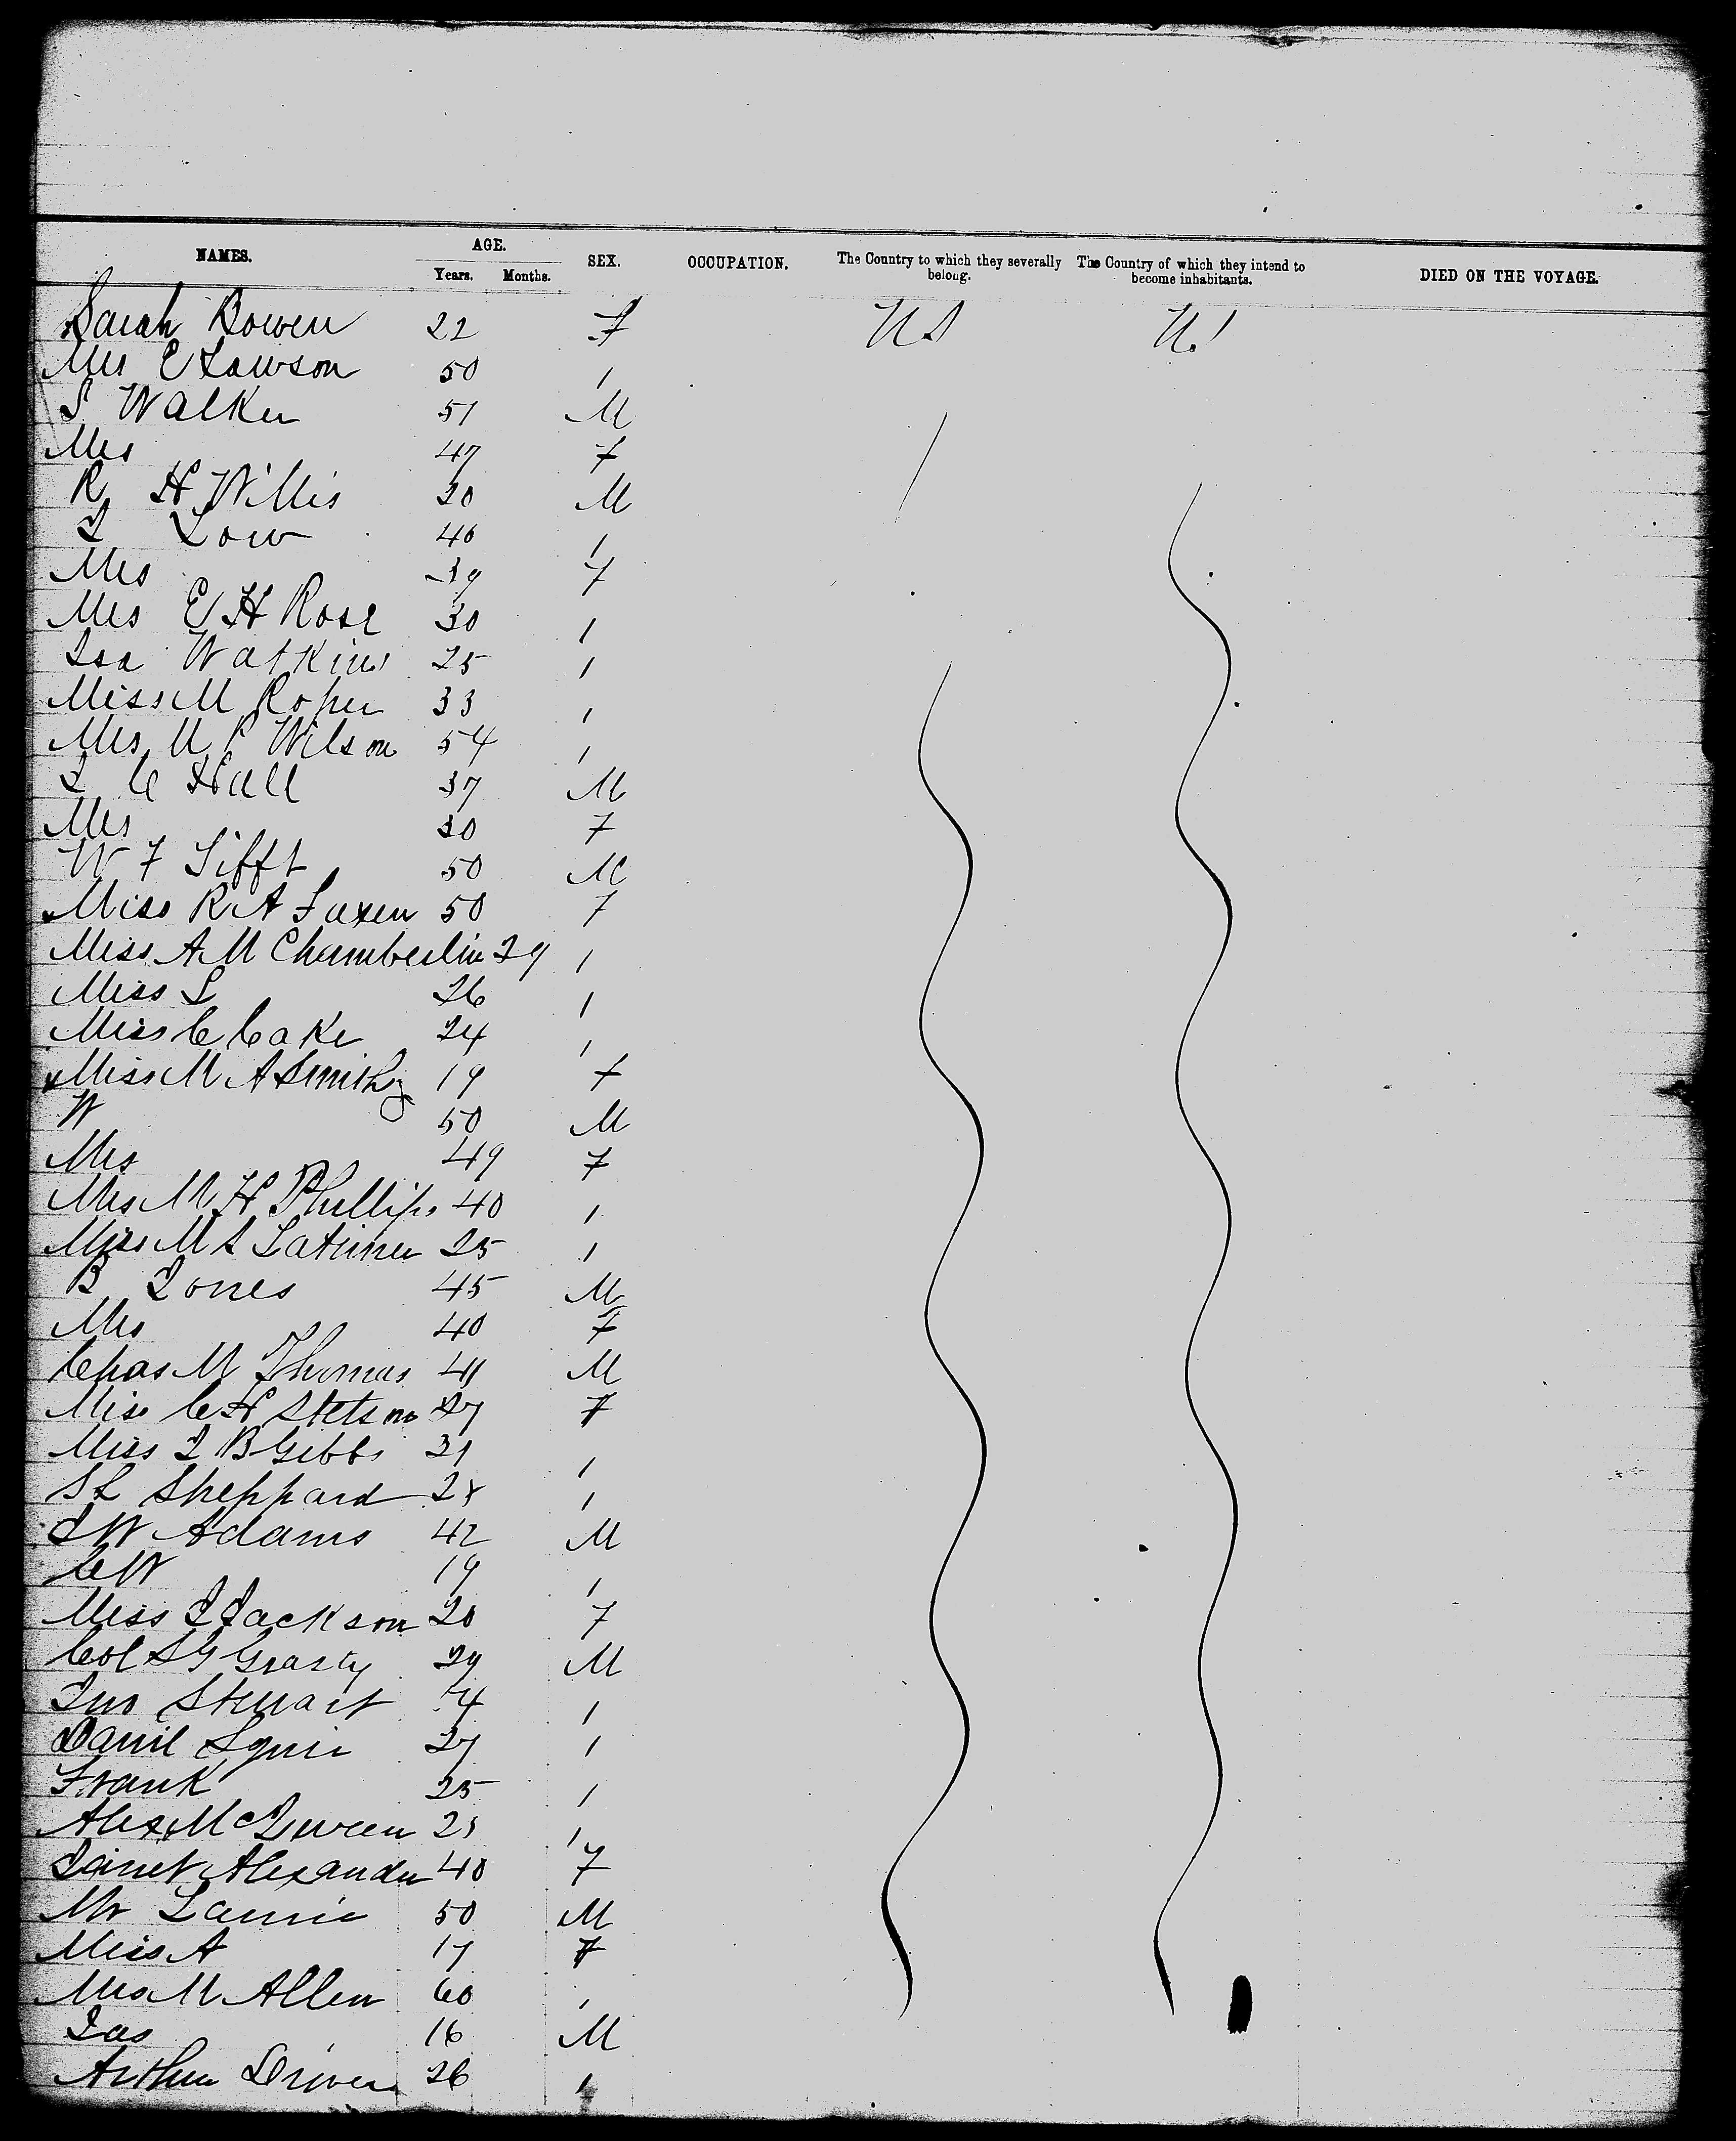 NAMES. AGE. SEX. OCCUPATION. The Country to which they severally belong. The Country of which they intend to become inhabitants. DIED ON THE VOYAGE.
Years. Months.
Sarah Bowen 22 F US US
Mrs E Lawson 50 "
S Walker 51 M
Mrs 47 F
R H Willis 20 M
J Low 46 "
Mrs 39 F
Mrs E H Rose 30 "
Isa Watkins 25 "
Miss M Roper 33 "
Mrs M P Wilson 54 "
J C Hall 37 M
Mrs 30 F
W F Tifft 50 M
Miss R A 50 F
Miss A M Chamberlin 29 "
Miss L 26 "
Miss C Cake 24 "
Miss M A Smith 19 F
W 50 M
Mrs 49 F
Mrs M H Phillips 40 "
Miss M L Latimer 25 "
B Jones 45 M
Mrs 40 F
Chas M Thomas 41 M
Miss C H Stetson 27 F
Miss J B Gibbs 31 "
S L Sheppard 28 "
J W Adams 42 M
C W 19 "
Miss J Jackson 20 F
Col S G Grasty 29 M
Jno Stewart "
Danil Squire 27 "
Frank 25 "
Alex "
Janet Alexander 40 F
Mr Laurie 50 M
Miss A 17 F
Mrs M Allen 60 "
Jas 16 M
Arthur Driver 26 "